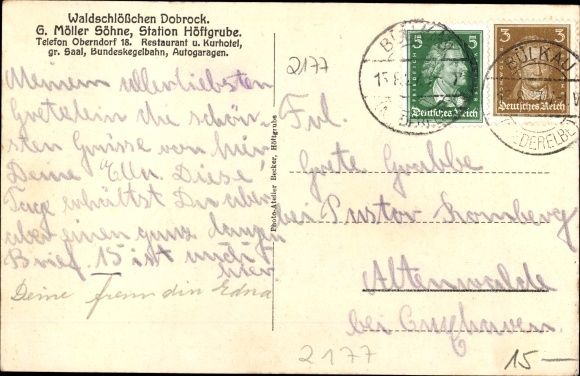 Waldschlößchen Dobrock.
G. Möller Söhne, Station Höftgrube.
Telefon Oberndorf 18. Restaurant u. Kurhotel,
gr. Saal, Bundeskegelbahn, Autogaragen.
Meinem allerliebsten
Gretelein die schön-
sten Grüsse von hier
Deine Elln. Diese
Tage erhältst Du aber
aber einen ganz langen
Brief. 15 ist auch
hier
Deine Freundin Edna
Photo-Atelier Becker, Höftgrube
2177
5 5
Deutsches Reich
3 3
Deutsches Reich
BÜLKAU
Frl.
Grete Grabbe
bei Pastor
Altenwalde
bei Cuxhaven.
2177
15.-